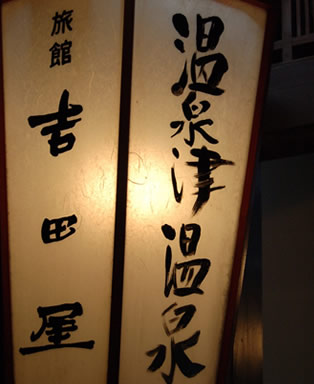 温泉津温泉
旅館
吉田屋